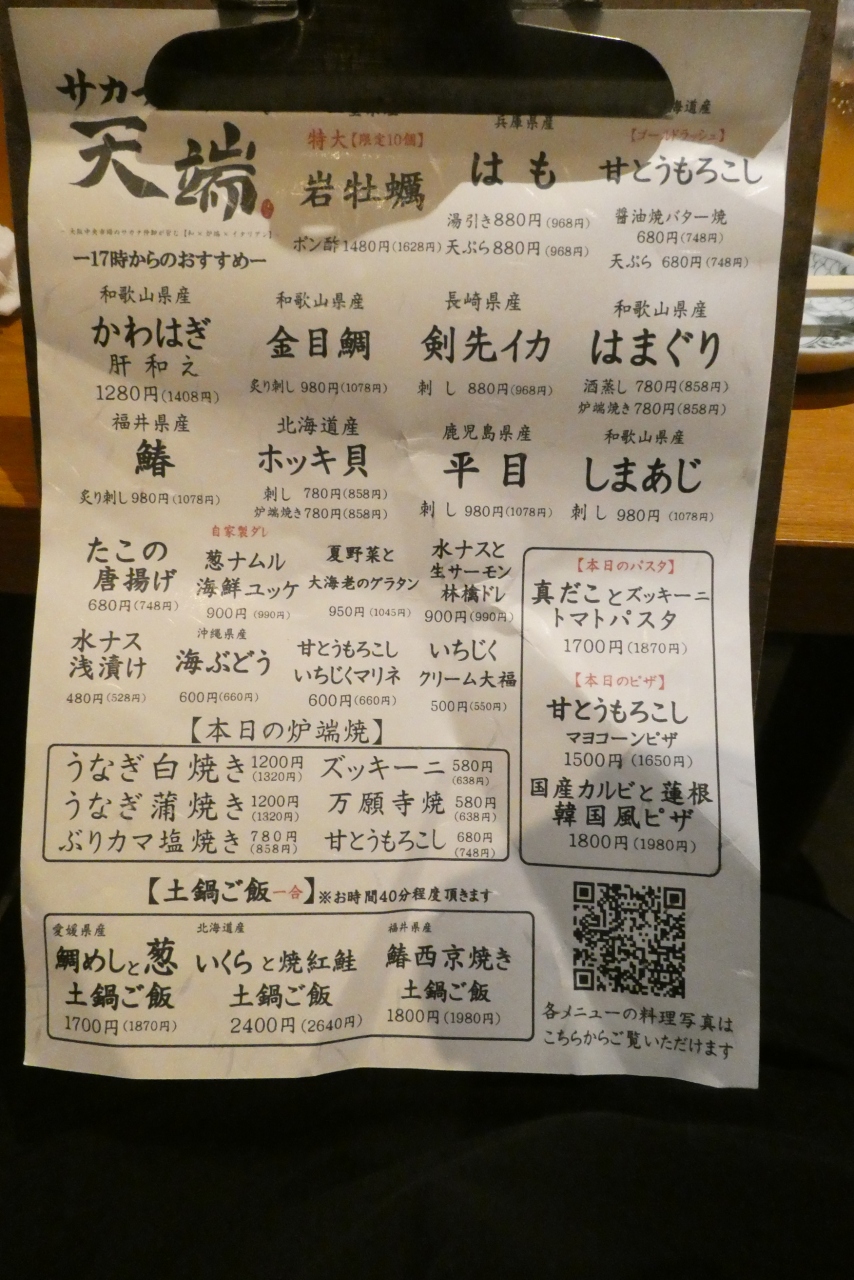 サカ
天端
ー17時からのおすすめー
特大【限定10個】
岩牡蠣
ポン酢1480円(1628円)
兵庫県産
はも
湯引き880円(968円)
天ぷら880円(968円)
海道産
【ゴールドラッシュ】
甘とうもろこし
醤油焼バター焼
680円(748円)
天ぷら 680円(748円)
和歌山県産
かわはぎ
肝和え
1280円(1408円)
和歌山県産
金目鯛
炙り刺し 980円(1078円)
長崎県産
剣先イカ
刺し 880円(968円)
和歌山県産
はまぐり
酒蒸し 780円(858円)
炉端焼き780円(858円)
福井県産
鰆
炙り刺し980円(1078円)
北海道産
ホッキ貝
刺し 780円(858円)
炉端焼き780円(858円)
鹿児島県産
平目
刺し 980円(1078円)
和歌山県産
しまあじ
刺し 980円(1078円)
たこの
唐揚げ
680円(748円)
自家製ダレ
葱ナムル
海鮮ユッケ
900円(990円)
夏野菜と
大海老のグラタン
950円(1045円)
水ナスと
生サーモン
林檎ドレ
900円(990円)
水ナス
浅漬け
480円(528円)
沖縄県産
海ぶどう
600円(660円)
甘とうもろこし
いちじくマリネ
600円(660円)
いちじく
クリーム大福
500円(550円)
【本日のパスタ】
真だことズッキーニ
トマトパスタ
1700円(1870円)
【本日のピザ】
甘とうもろこし
マヨコーンピザ
1500円(1650円)
国産カルビと蓮根
韓国風ピザ
1800円(1980円)
【本日の炉端焼】
うなぎ白焼き 1200円(1320円)
ズッキーニ 580円(638円)
うなぎ蒲焼き 1200円(1320円)
万願寺焼 580円(638円)
ぶりカマ塩焼き 780円(858円)
甘とうもろこし 680円(748円)
【土鍋ご飯一合】※お時間40分程度頂きます
愛媛県産
鯛めしと葱
土鍋ご飯
1700円(1870円)
北海道産
いくらと焼紅鮭
土鍋ご飯
2400円(2640円)
福井県産
鰆西京焼き
土鍋ご飯
1800円(1980円)
各メニューの料理写真は
こちらからご覧いただけます